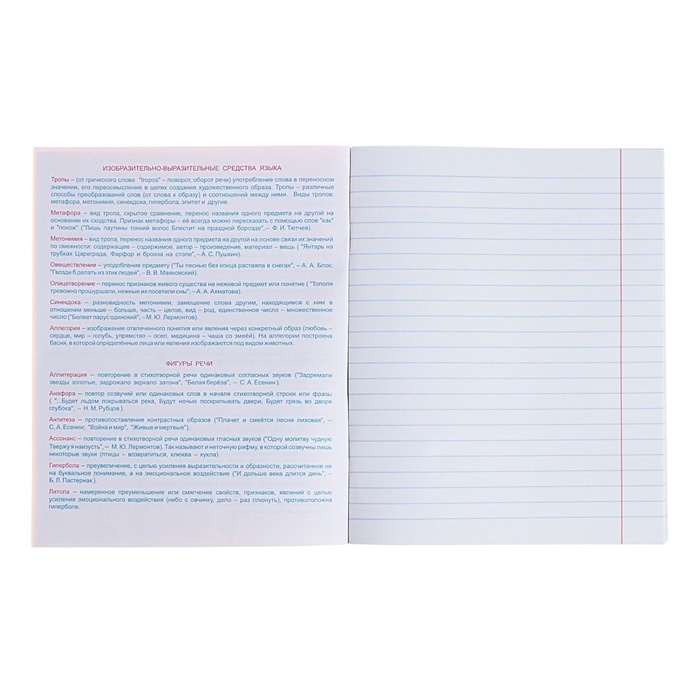 ИЗОБРАЗИТЕЛЬНО-ВЫРАЗИТЕЛЬНЫЕ СРЕДСТВА ЯЗЫКА
Тропы – (от греческого слова "tropos" – поворот, оборот речи) употребление слова в переносном
значении, его переосмысление в целях создания художественного образа. Тропы – различные
способы преобразований слов (от слова к образу) и соотношений между ними. Виды тропов:
метафора, метонимия, синекдоха, гипербола, эпитет и другие.
Метафора – вид тропа, скрытое сравнение, перенос названия одного предмета на другой на
основании их сходства. Признак метафоры – её всегда можно пересказать с помощью слов "как"
и "похож" ("Лишь паутины тонкий волос Блестит на праздной борозде", – Ф. И. Тютчев).
Метонимия – вид тропа, перенос названия одного предмета на другой на основе связи их значений
по смежности: содержащее – содержимое, автор – произведение, материал – вещь ( "Янтарь на
трубках Цареграда, Фарфор и бронза на столе", – А. С. Пушкин).
Овеществление – уподобление предмету ("Ты песнью без конца растаяла в снегах", – А. А. Блок;
"Гвозди б делать из этих людей", – В. В. Маяковский).
Олицетворение – перенос признаков живого существа на неживой предмет или понятие ( "Тополя
тревожно прошуршали, нежные их посетили сны", – А. А. Ахматова).
Синекдоха – разновидность метонимии, замещение слова другим, находящимся с ним в
отношении меньше – больше, часть – целое, вид – род, единственное число – множественное
число ("Белеет парус одинский", – М. Ю. Лермонтов).
Аллегория – изображение отвлеченного понятия или явления через конкретный образ (любовь –
сердце, мир – голубь, упрямство – осел, медицина – чаша со змеёй). На аллегории построена
басня, в которой определённые лица или явления изображаются под видом животных.
ФИГУРЫ РЕЧИ
Аллитерация – повторение в стихотворной речи одинаковых согласных звуков ("Задремали
звезды золотые, задрожало зеркало затона", "Белая берёза", – С. А. Есенин ).
Анафора – повтор созвучий или одинаковых слов в начале стихотворной строки или фразы
( "...Будет льдом покрываться река, Будут ночью поскрипывать двери, Будет грязь во дворе
глубока", – Н. М. Рубцов ).
Актитеза – противопоставление контрастных образов ("Плачет и смеётся песня лиховая", –
С. А. Есенин; "Война и мир", "Живые и мертвые").
Ассонанс – повторение в стихотворной речи одинаковых гласных звуков ("Одну молитву чудную
Твержу я наизусть", – М. Ю. Лермонтов). Так называют и неточную рифму, в которой созвучны лишь
некоторые звуки (птицы – возвратиться, клюква – кукла).
Гипербола – преувеличение, с целью усиления выразительности и образности, рассчитанное не
на буквальное понимание, а на эмоциональное воздействие ("И дольше века длится день". –
Б. Л. Пастернак ).
Литола – намеренное преуменьшение или смягчение свойств, признаков, явлений с целью
усиления эмоционального воздействия (небо с овчинку, дело – раз плюнуть), противоположна
гиперболе.